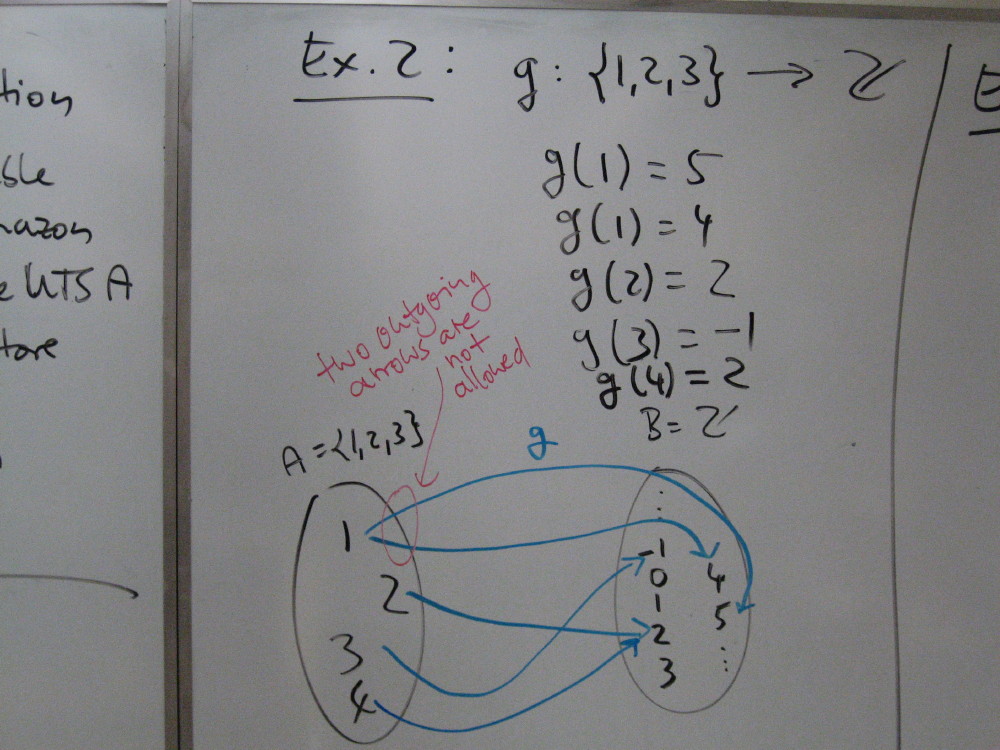 Ex. 2 : g : {1,2,3} → ℤ
g(1) = 5
g(1) = 4
g(2) = 2
g(3) = -1
g(4) = 2
B = ℤ
two outgoing
arrows are
not
allowed
A = {1,2,3}
g
1
2
3
4
⋮
-1
0
1
2
3
4
5
⋮
tion
UTSA
E